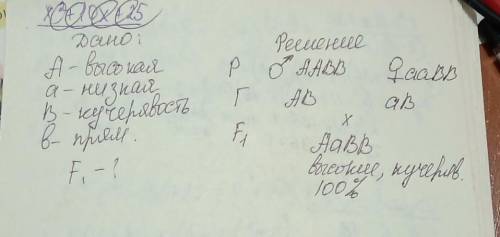 Дано:
А - высокая
а - низкая
В - кучерявость
в - прям.
F₁ - ?
Решение
Р ♂ ААВВ ♀ ааВВ
Г АВ аВ
х
F₁ АаВВ
высокие, кучеряв.
100%